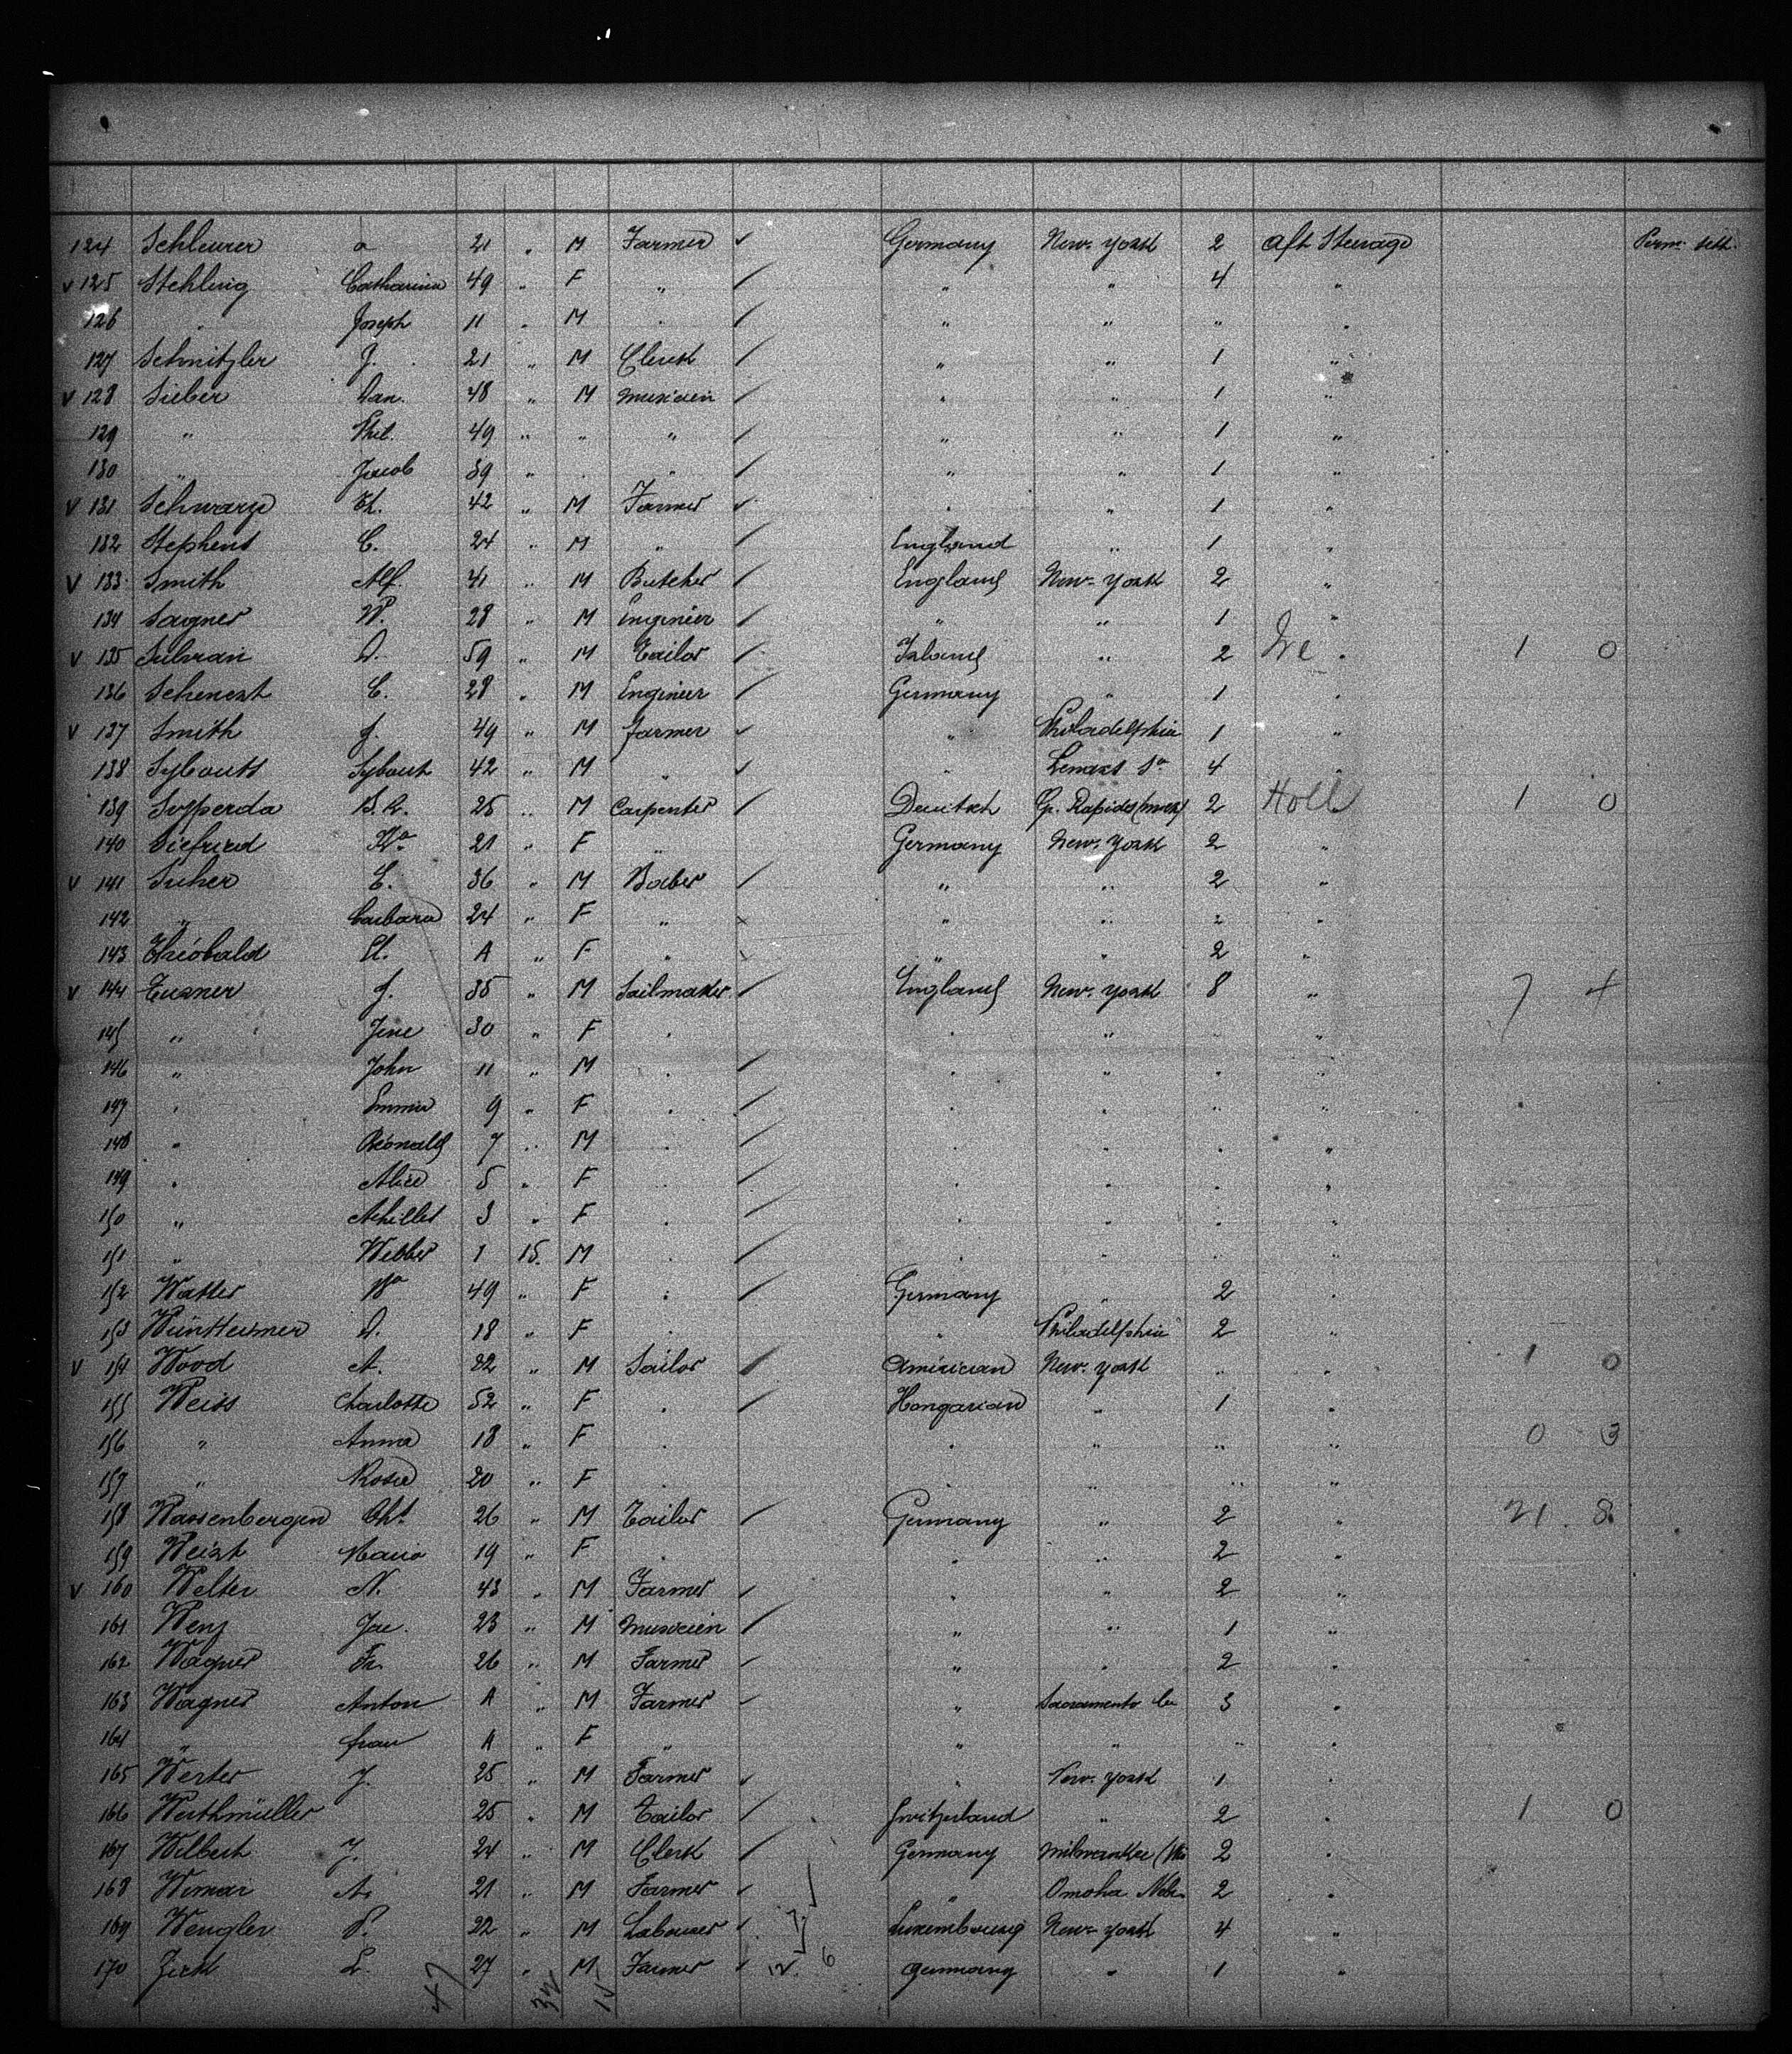 124 Schleurer a 21 " M Farmer ✓ Germany New-york 2 Aft Steerage
v 125 Stehling Catharina 49 " F " " " 4 "
126 " Joseph 11 " M " " " " "
127 Schnitzler J. 21 " M Clerk " " 1 "
v 128 Sieber Dan. 48 " M Musicien " " 1 "
129 " Phil. 49 " " " " " 1 "
130 " Jacob 39 " " " " " 1 "
v 131 Schwarz 42 " M Farmer ✓ " " 1 "
132 Stephens C. 24 " M " England " 1 "
v 133 Smith Alf. 41 " M Butcher England New-york 2 "
134 Sagner W. 28 " M Enginier " " 1 "
v 135 D. 59 " M Tailor " 2 Ire " 1 0
136 C. 28 " M Engineer Germany " 1 "
v 137 Smith J. 49 " M Farmer ✓ " Philadelphia 1 "
138 Sybouts Sybout 42 " M " ✓ " 4 "
139 25 " M Carpenter Deutsch Gr. Rapides 2 Holl 1 0
140 Siefried 21 " F " Germany New-york 2 "
v 141 Suher E. 36 " M " " 2 "
142 " Barbara 24 " F " " " " "
143 Theobald A " F " " " 2 "
v 144 J. 35 " M Sailmaker England New-york 8 " 7 4
145 " Jine 30 " F " " " " "
146 " John 11 " M " " " " "
147 " Emma 9 " F " " " " "
148 " Reonald 7 " M " " " " "
149 " Alice 5 " F " " " " "
150 " Achilles 3 " F " " " " "
151 " Webber 1 15. M " " " " "
152 Watter 49 " F " Germany " 2 "
153 D. 18 " F " " Philadelphia 2 "
v 154 Wood A. 32 " M Sailor Amirican New-york " " 1 0
155 Weiss Charlotte 52 " F " Hongarian " 1 "
156 " Anna 18 " F " " " " " 0 3
157 " Rosa 20 " F " " " " "
158 Wassenbergen Cht 26 " M Tailor Germany " 2 " 21 8
159 Maria 19 " F " " " 2 "
v 160 Welter N. 43 " M Farmer " " 2 "
161 Wenz Jac. 23 " M Musicien " " 1 "
162 Wagner Fr. 26 " M Farmer " " 2 "
163 Wagner Anton A " M Farmer " Sacramento Ca 3 "
164 " frau A " F " " " " "
165 Werter J. 25 " M Farmer ✓ " New-york 1 "
166 Werthmüller 25 " M Tailor Switzerland " 2 " 1 0
167 Wilbert J. 24 " M Clerk Germany Milwaukee 2 "
168 A. 21 " M Farmer ✓ " Omoha Neb. 2 "
169 Wengler P. 22 " M Labourer Luxembourg New-york 4 "
170 L. 27 " M Farmer Germany " 1 "
47 32 15 12 6